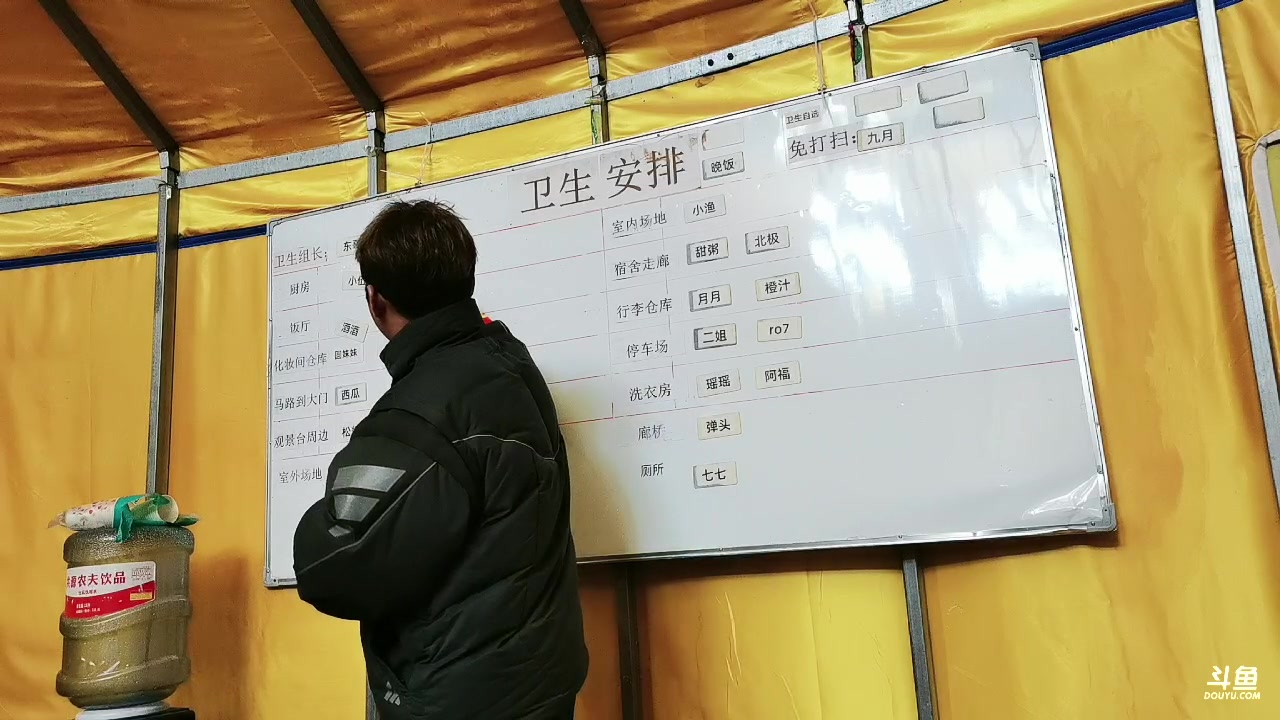 卫生安排 晚饭
卫生自选
免打扫: 九月
卫生组长: 东
厨房 小
饭厅 酒酒
化妆间仓库 国妹妹
马路到大门 西瓜
观景台周边 松
室外场地
室内场地 小渔
宿舍走廊 甜粥 北极
行李仓库 月月 橙汁
停车场 二姐 ro7
洗衣房 瑶瑶 阿福
廊桥 弹头
厕所 七七
农夫饮品
斗鱼
DOUYU.COM